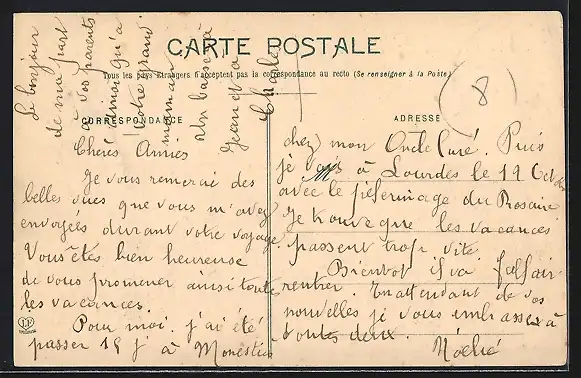 CARTE POSTALE
Tous les pays Etrangers n'acceptent pas la correspondance au recto (Se renseigner à la Poste)
CORRESPONDANCE
ADRESSE
8
Chères Amies
Je vous remerai des
belles vues que vous m'avez
envoyiés durant votre voyage.
Vous êtes bien heureuse
de vous promener ainsi toute
les vacances.
Pour moi j'ai été
passer 15 j à Monestiés
chez mon Oncle Curé. Puis
je vais à Lourdes le 12 Octobre
avec le pélerinage du Rosaire
Je trouve que les vacances
passent trop vite.
Bientot il va falloir
rentrer. En attendant de vos
nouvelles je vous embrasse à
toutes deux.
Le bonjour
de ma part
à vos parents
ainsi qu'à
votre grand
maman
Un baiser à
Jean et à
Charles